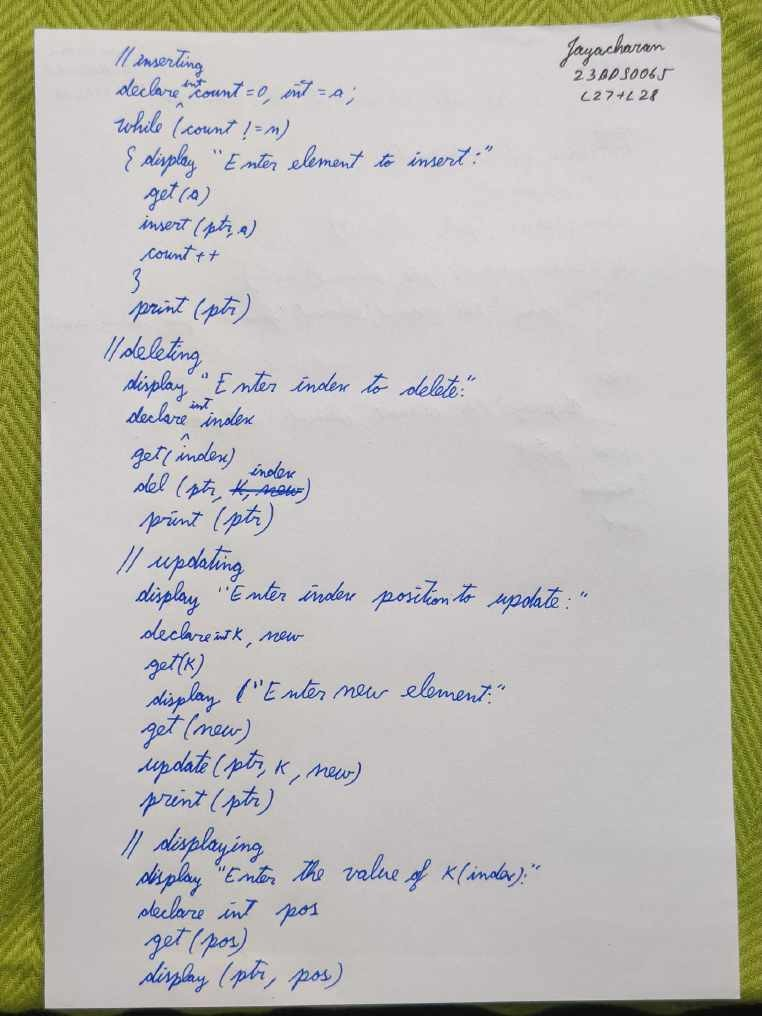 Jayacharan
23BDS0065
L27+L28
// inserting
declare int count = 0, int = a;
while (count != n)
{ display "Enter element to insert:"
get(a)
insert (ptr, a)
count++
}
print (ptr)
// deleting
display "Enter index to delete:"
declare int index
get(index)
del (ptr, K, new index)
print (ptr)
// updating
display "Enter index position to update:"
declare int K, new
get(K)
display ("Enter new element:"
get (new)
update (ptr, K, new)
print (ptr)
// displaying
display "Enter the value of K(index):"
declare int pos
get (pos)
display (ptr, pos)